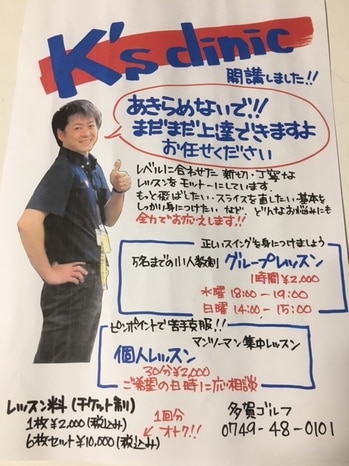 K's clinic
開講しました!!
あきらめないで!!
まだまだ上達できますよ
お任せください
レベルに合わせた 親切・丁寧な
レッスンをモットーにしています。
もっと飛ばしたい・スライスを直したい・基本を
しっかり身につけたい、など どんなお悩みにも
全力でお応えします!!
正しいスイングを身につけましょう
5名までの少人数制 グループレッスン
1時間¥2,000
水曜 18:00-19:00
日曜 14:00-15:00
ピンポイントで苦手克服!!
マンツーマン集中レッスン
個人レッスン
30分¥2,000
ご希望の日時に応相談
レッスン料(チケット制)
1枚¥2,000(税込み)
6枚セット¥10,000(税込み)
1回分
オトク!!
多賀ゴルフ
0749-48-0101